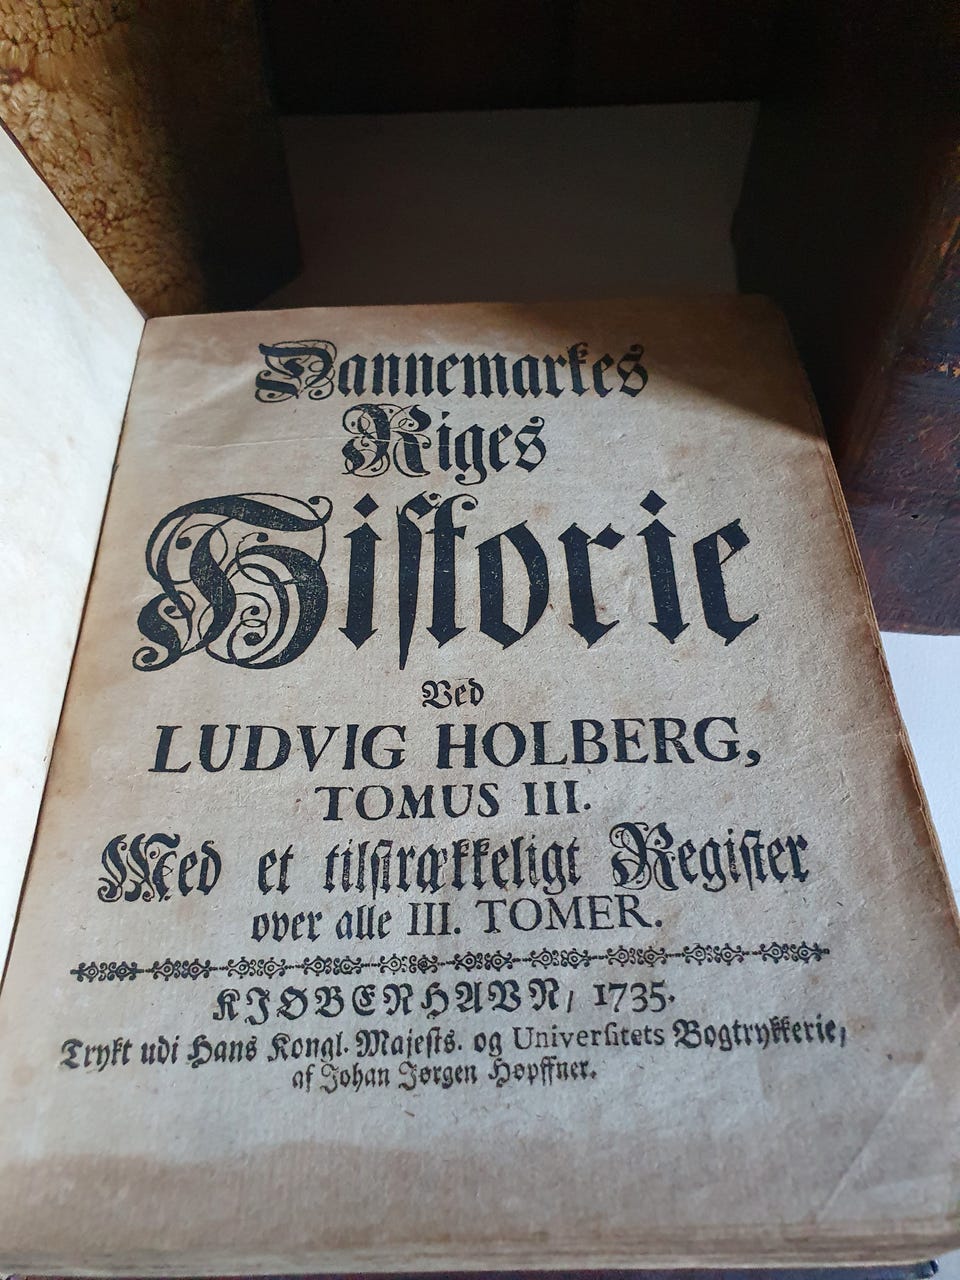 Dannemarkes
Riges
Hiſtorie
Ved
LUDVIG HOLBERG,
TOMUS III.
Med et tilſtrækkeligt Regiſter
over alle III. TOMER.
KJØBENHAVN/ 1735.
Trykt udi Hans Kongl. Majeſts. og Univerſitets Bogtrykkerie,
af Johan Jørgen Høpffner.